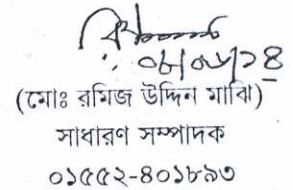 ০৮/০৬/১৪
(মোঃ রমিজ উদ্দিন মাঝি)
সাধারণ সম্পাদক
০১৫৫২-৪০১৮৯৩